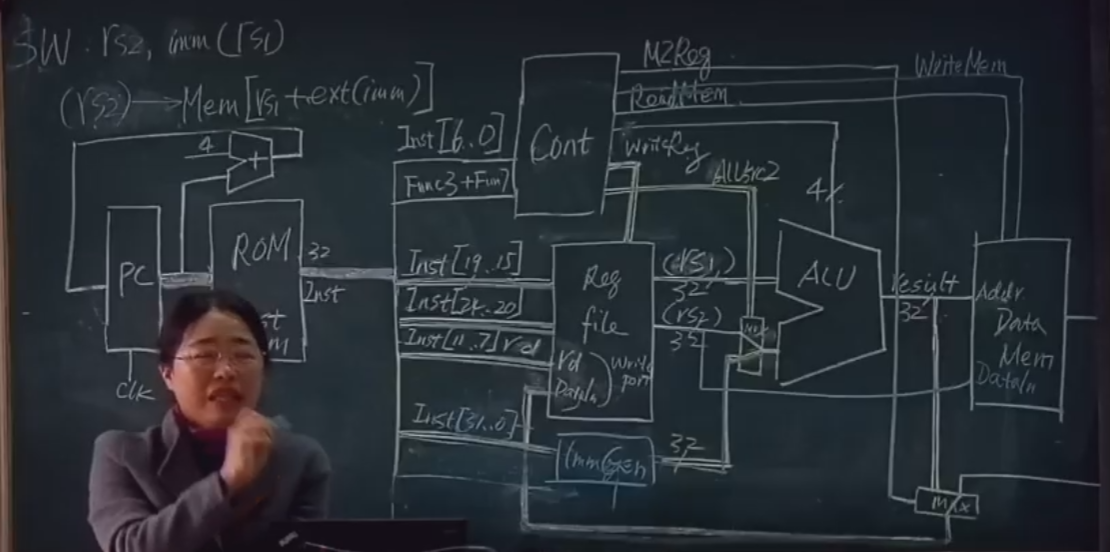 SW rs2, imm(rs1)
(rs2)→Mem[rs1+ext(imm)]
4
+
PC
Clk
ROM
32
Inst
Inst[6..0]
Func3+Fun7
Cont
M2Reg
WriteMem
ReadMem
WriteReg
ALUsrc2
4
Inst[19..15]
Inst[24..20]
Inst[11..7] rd
Inst[31..0]
Reg
file
rd
DataIn
Write
port
ImmGen
32
(rs1)
32
(rs2)
32
ALU
result
32
Addr
Data
Mem
DataIn
mux